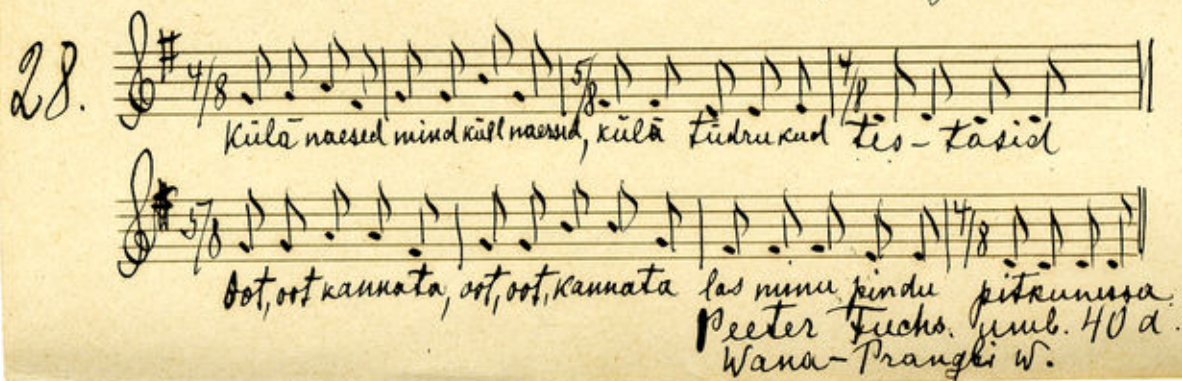 28.
4/8 5/8 4/8
Külä naesed mind küll naersid, külä tüdrukud tes-tasid
5/8 4/8
Oot, oot kannata, oot, oot, kannata las minu pindu pitkunessa
Peeter Fuchs. umb. 40 a.
Wana-Prangli w.